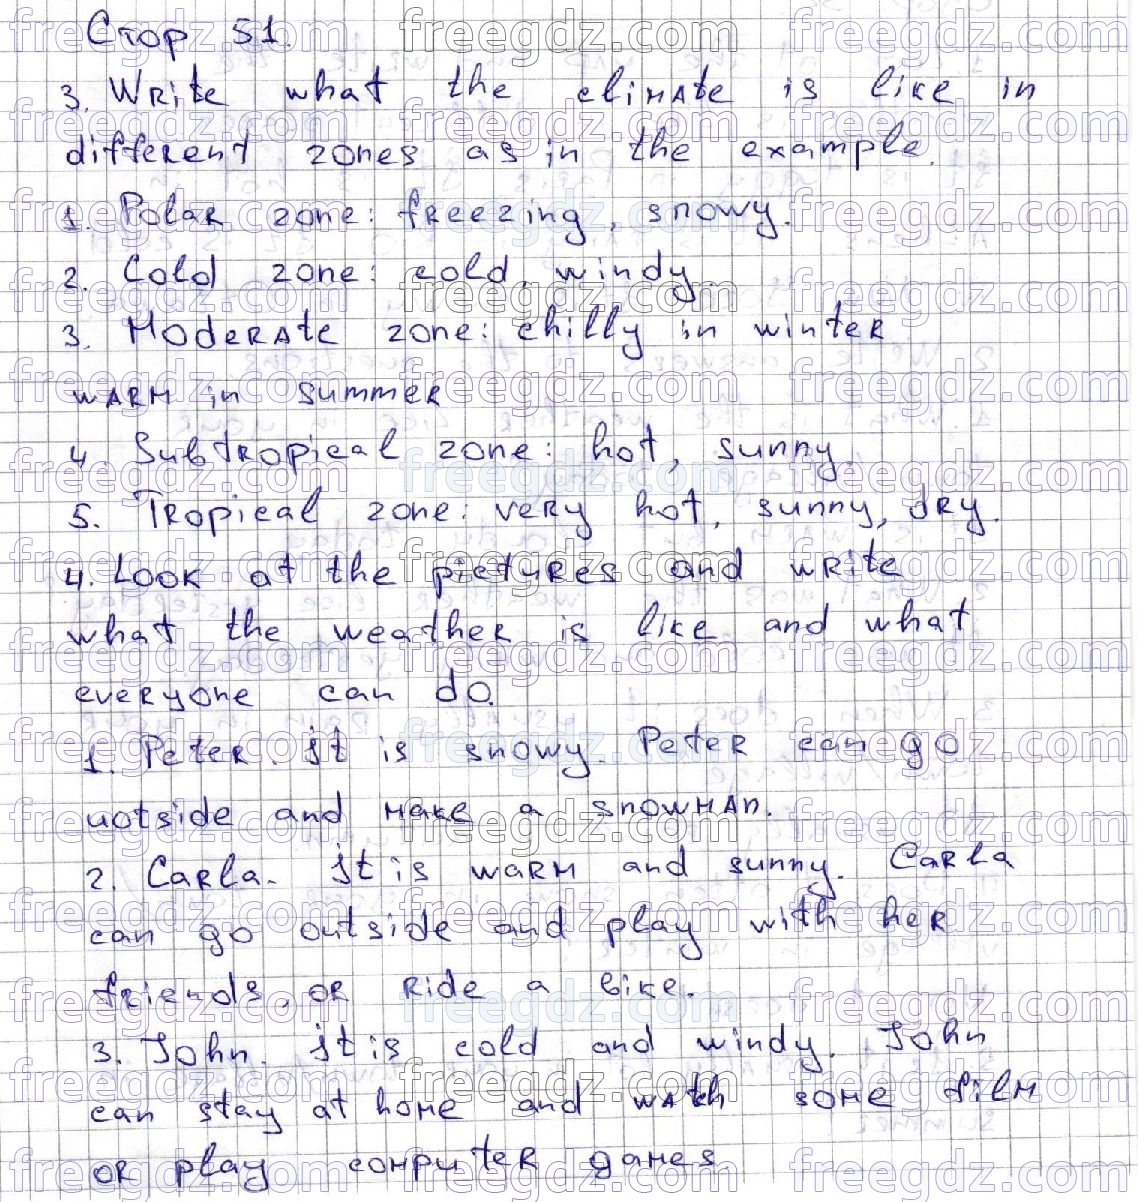 Стор 51.
3. Write what the climate is like in
different zones as in the example.
1. Polar zone: freezing, snowy.
2. Cold zone: cold, windy
3. Moderate zone: chilly in winter
warm in summer
4. Subtropical zone: hot, sunny.
5. Tropical zone: very hot, sunny, dry.
4. Look at the pictures and write
what the weather is like and what
everyone can do.
1. Peter. It is snowy. Peter can go
uotside and make a snowman.
2. Carla. It is warm and sunny. Carla
can go outside and play with her
friends, or ride a bike.
3. John. It is cold and windy. John
can stay at home and watch some film
or play computer games